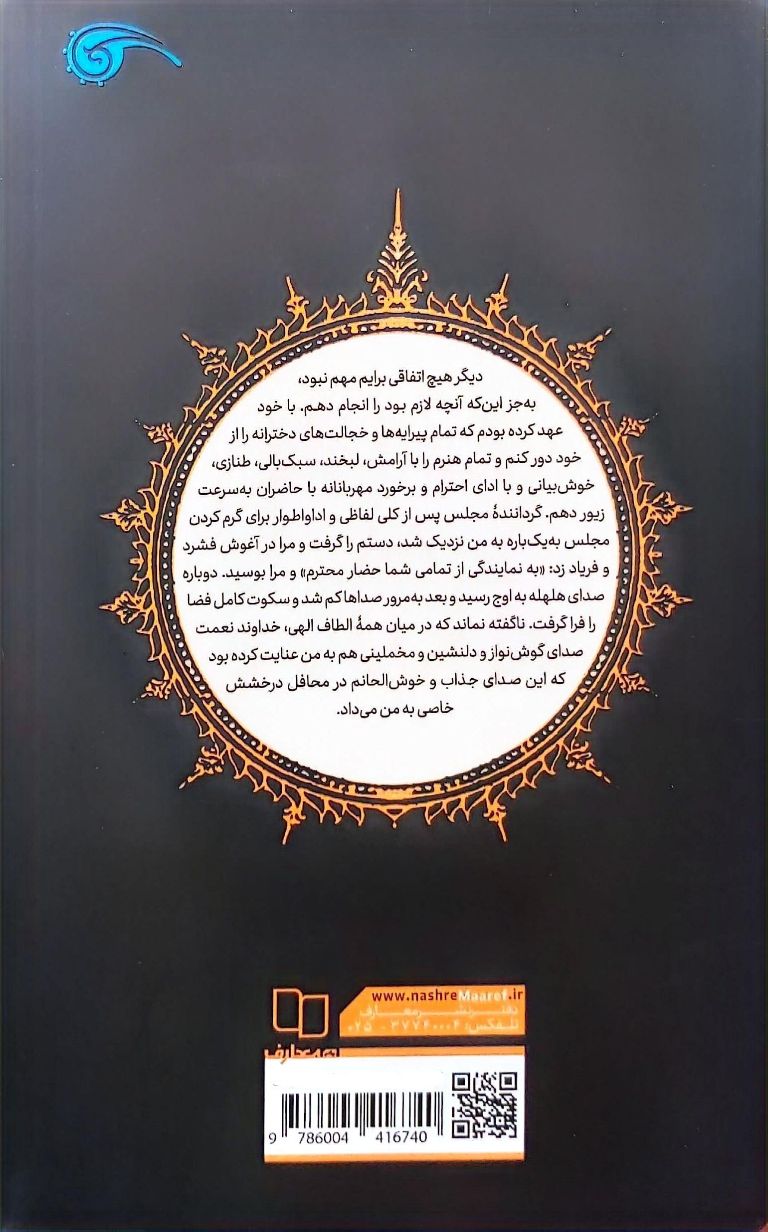 دیگر هیچ اتفاقی برایم مهم نبود،
به‌جز این‌که آنچه لازم بود را انجام دهم. با خود
عهد کرده بودم که تمام پیرایه‌ها و خجالت‌های دخترانه را از
خود دور کنم و تمام هنرم را با آرامش، لبخند، سبک‌بالی، طنازی،
خوش‌بیانی و با ادای احترام و برخورد مهربانانه با حاضران به‌سرعت
زیور دهم. گردانندهٔ مجلس پس از کلی لفاظی و اداواطوار برای گرم کردن
مجلس به‌یک‌باره به من نزدیک شد، دستم را گرفت و مرا در آغوش فشرد
و فریاد زد: «به نمایندگی از تمامی شما حضار محترم» و مرا بوسید. دوباره
صدای هلهله به اوج رسید و بعد به‌مرور صداها کم شد و سکوت کامل فضا
را فرا گرفت. ناگفته نماند که در میان همهٔ الطاف الهی، خداوند نعمت
صدای گوش‌نواز و دلنشین و مخملینی هم به من عنایت کرده بود
که این صدای جذاب و خوش‌الحانم در محافل درخشش
خاصی به من می‌داد.
www.nashreMaaref.ir
دفتر نشر معارف
تلفکس: ۳۷۷۴۰۰۰۴ - ۰۲۵
معارف
9 786004 416740